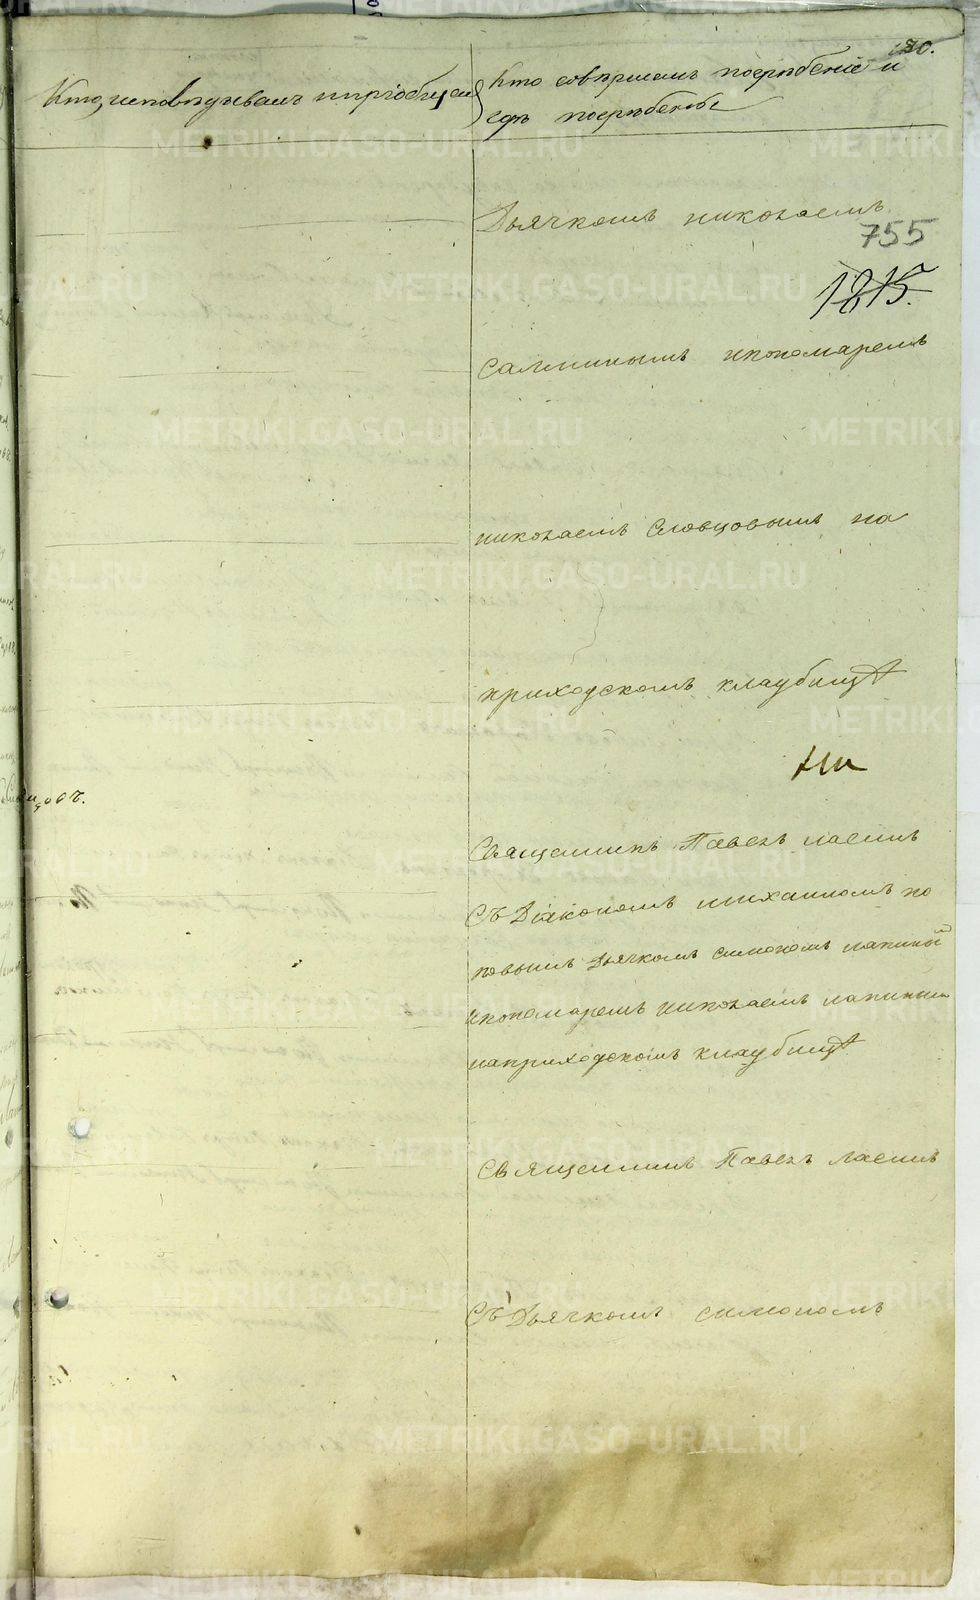 70.
Кто исповѣдывалъ и пріобщалъ
Кто совершалъ погребеніе и
гдѣ погребены
Дьячкомъ николаемъ
755
1815.
и пономаремъ
николаемъ Словцовымъ на
приходскомъ кладбищѣ
цовъ.
Священникъ Павелъ
Съ Діакономъ михаиломъ по
повымъ Дьячкомъ симономъ лапинымъ
и пономаремъ николаемъ лапинымъ
на приходскомъ кладбищѣ
Священникъ Павелъ
Съ Дьячкомъ симономъ
METRIKI.GASO-URAL.RU